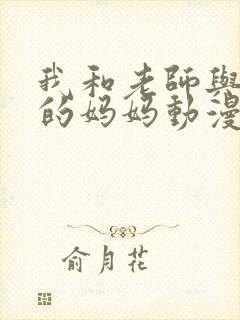 我和老師與
的妈妈動漫
俞月花